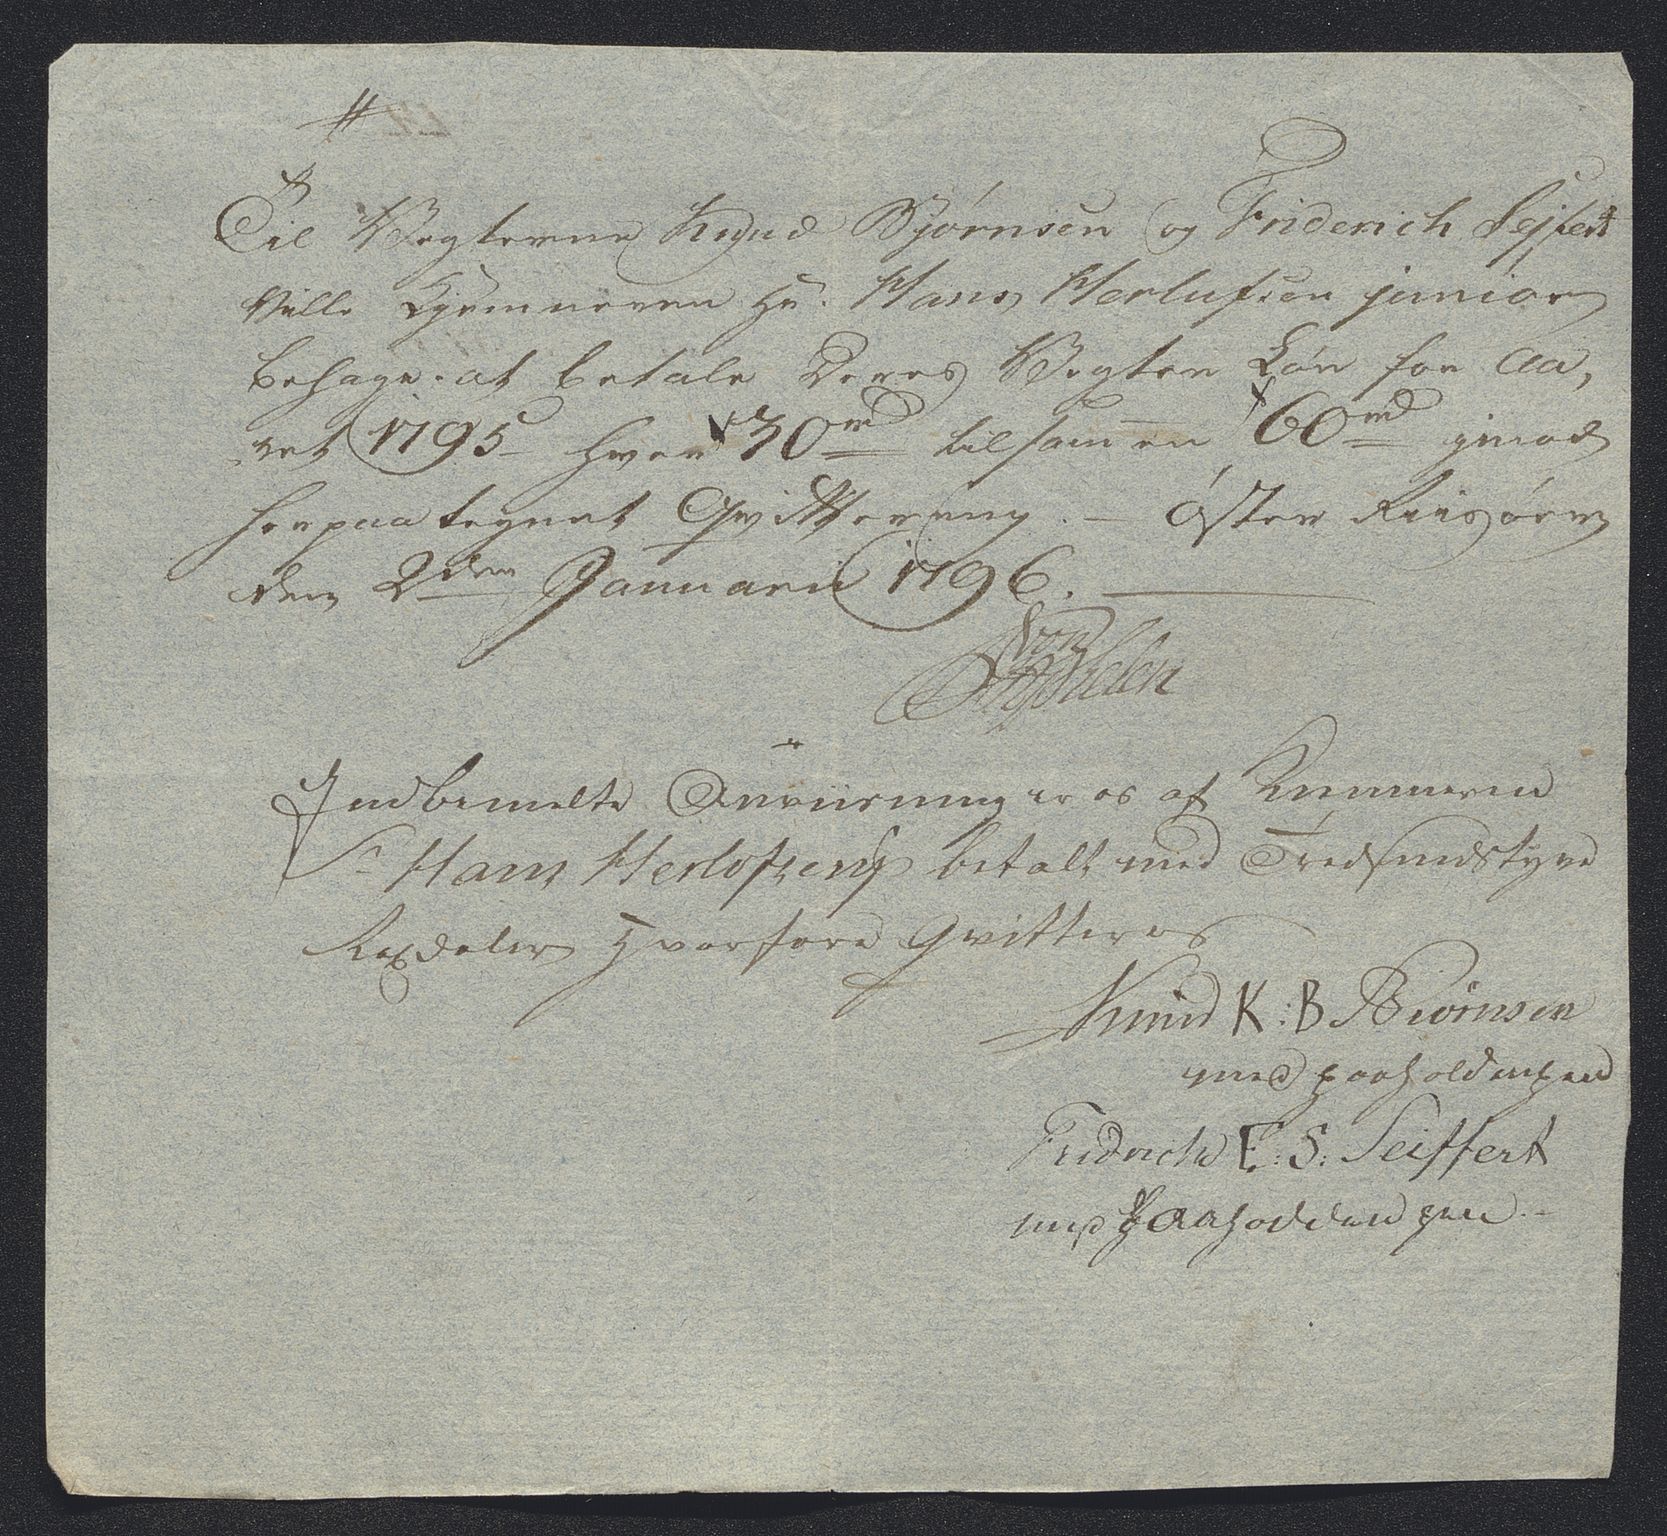 Til Vegterne Knud Bjørnsen og Friderich Sejfert
Ville Kjemneren Hr. Hans Herlufsen junior
behage at betale Deres Vegter Løn for Aa,
ret 1795 hver 30 rd tilsammen 60 rd imod
herpaa tegnet Qvittering. – Øster Riisøer
den 2den Januarii 1796.
von
Indbemelte Anviisning er os af Kemneren
Sr Hans Herlofsen betalt med Tredsindstyve
Rixdaler Hvorfore Qvitteres
Knud K: B Biørnsen
med paaholden pen
Fridrich F: S: Seiffert
med paaholden pen